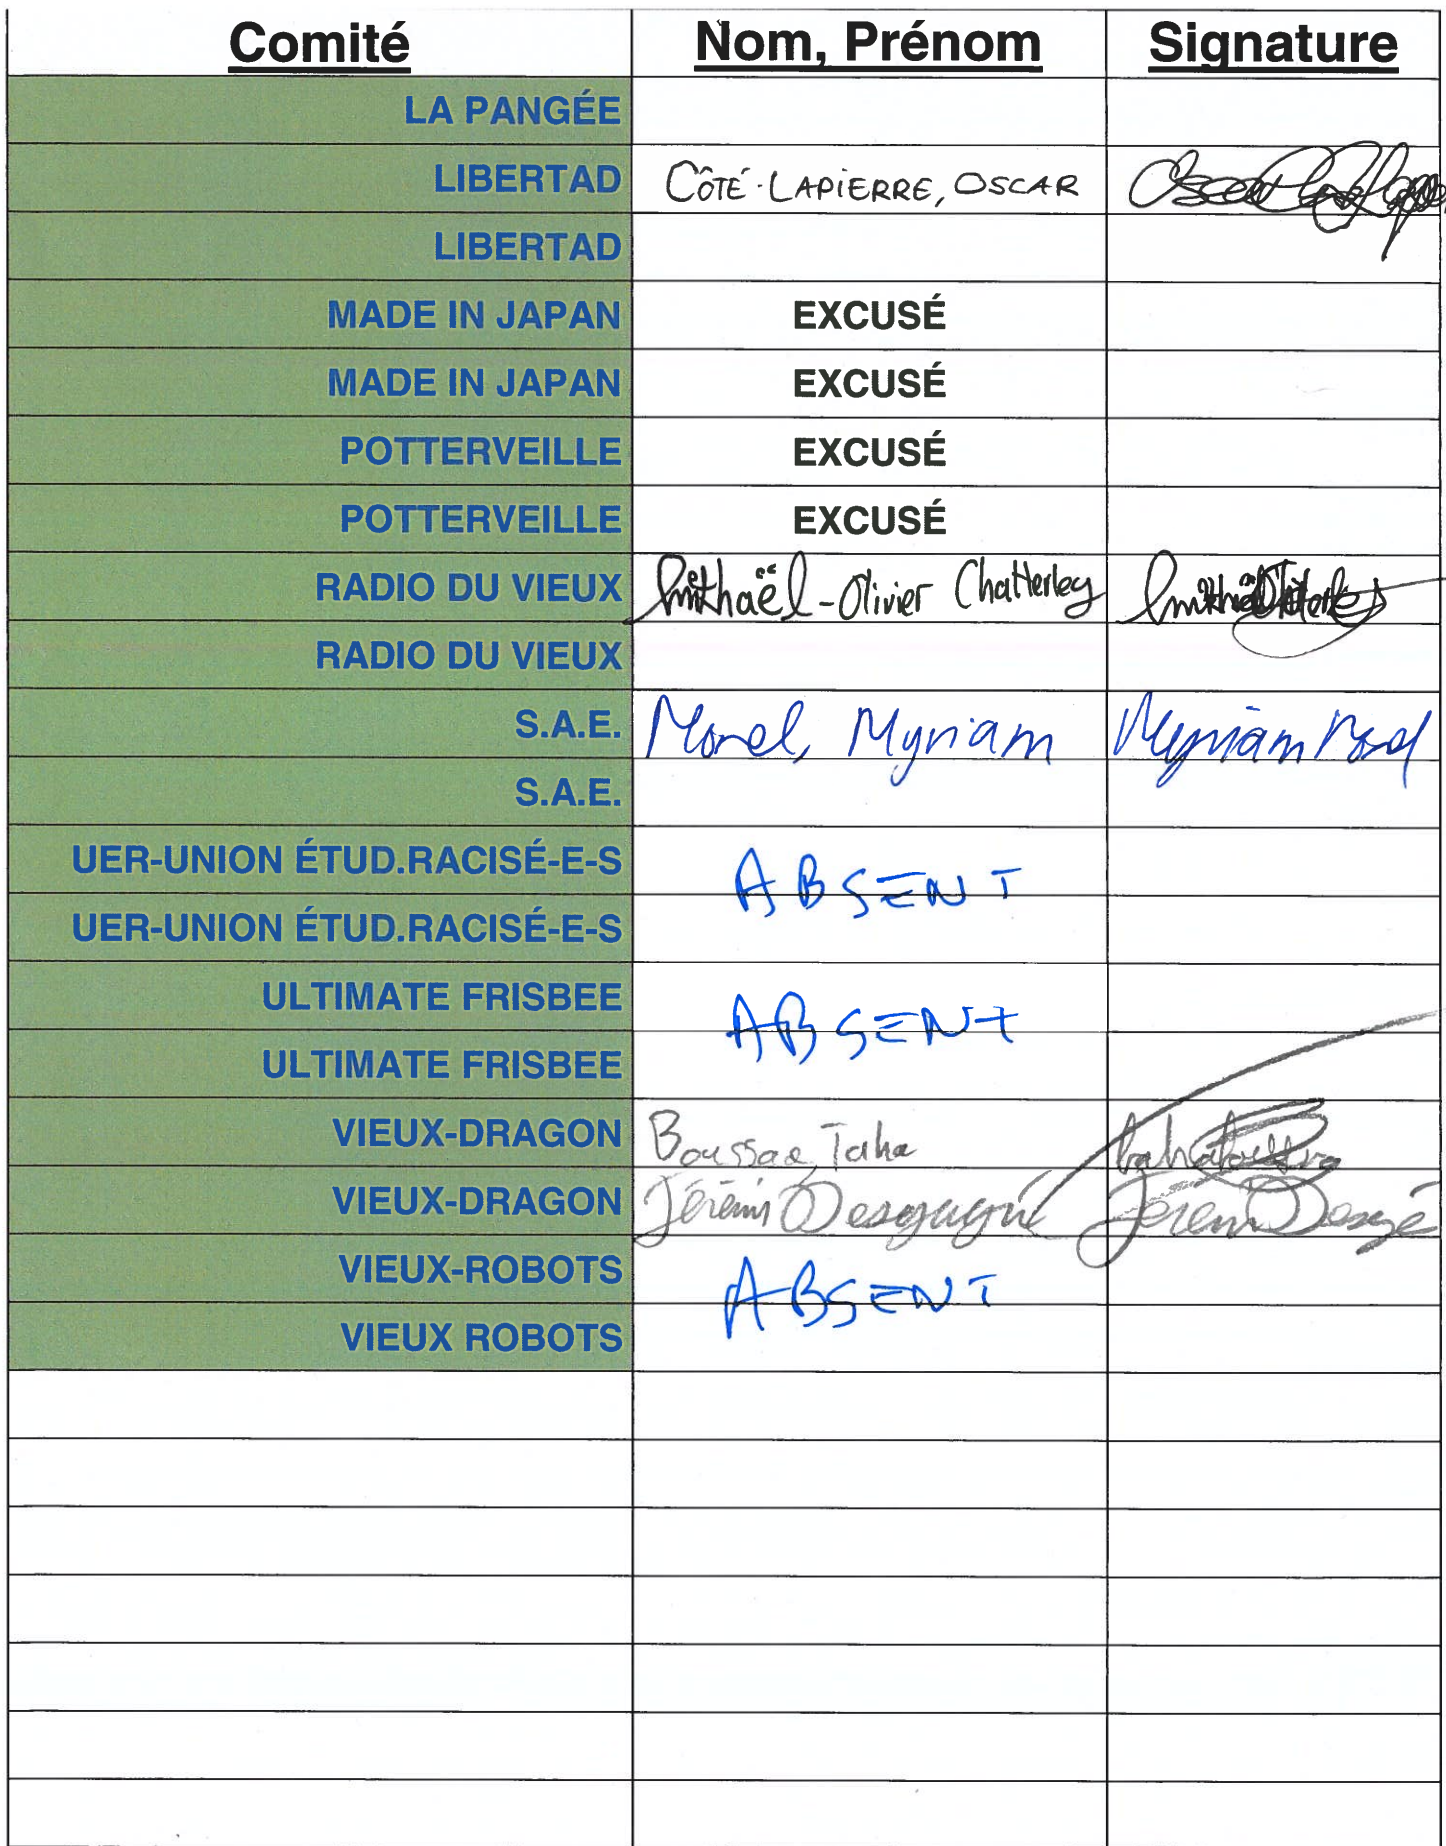 Comité Nom, Prénom Signature
LA PANGÉE
LIBERTAD CÔTÉ-LAPIERRE, OSCAR
LIBERTAD
MADE IN JAPAN EXCUSÉ
MADE IN JAPAN EXCUSÉ
POTTERVEILLE EXCUSÉ
POTTERVEILLE EXCUSÉ
RADIO DU VIEUX Mikhaël-Olivier Chatterley
RADIO DU VIEUX
S.A.E. Morel, Myriam Myriam Morel
S.A.E.
UER-UNION ÉTUD.RACISÉ-E-S ABSENT
UER-UNION ÉTUD.RACISÉ-E-S
ULTIMATE FRISBEE ABSENT
ULTIMATE FRISBEE
VIEUX-DRAGON Boussaa, Taha
VIEUX-DRAGON Jérémi Desgagné
VIEUX-ROBOTS ABSENT
VIEUX ROBOTS